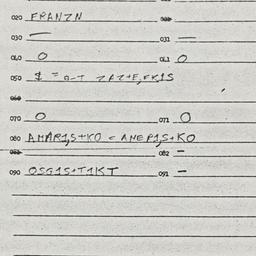 020 FRANZN 021
030 — 031 —
040 O 041 O
050 $ = a-T ZAZ+E,EK1S
060
070 O 071 O
080 AMAR1,S+KO = AMER1,S+KO
081 082 —
090 OSG1S+T1KT 091 —